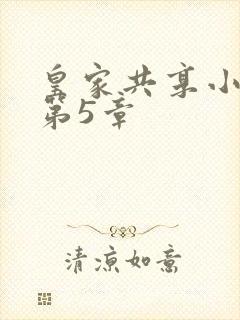 皇家共享小
第5章
清凉如意